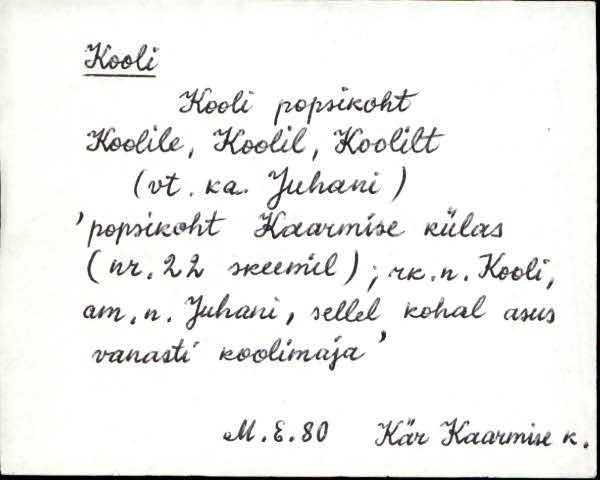 Kooli
Kooli popsikoht
Koolile, Koolil, Koolilt
(vt. ka. Juhani)
'popsikoht Kaarmise külas
(nr. 22 skeemil); rk. n. Kooli,
am. n. Juhani, sellel kohal asus
vanasti koolimaja'
M. E. 80 Kär Kaarmise k.